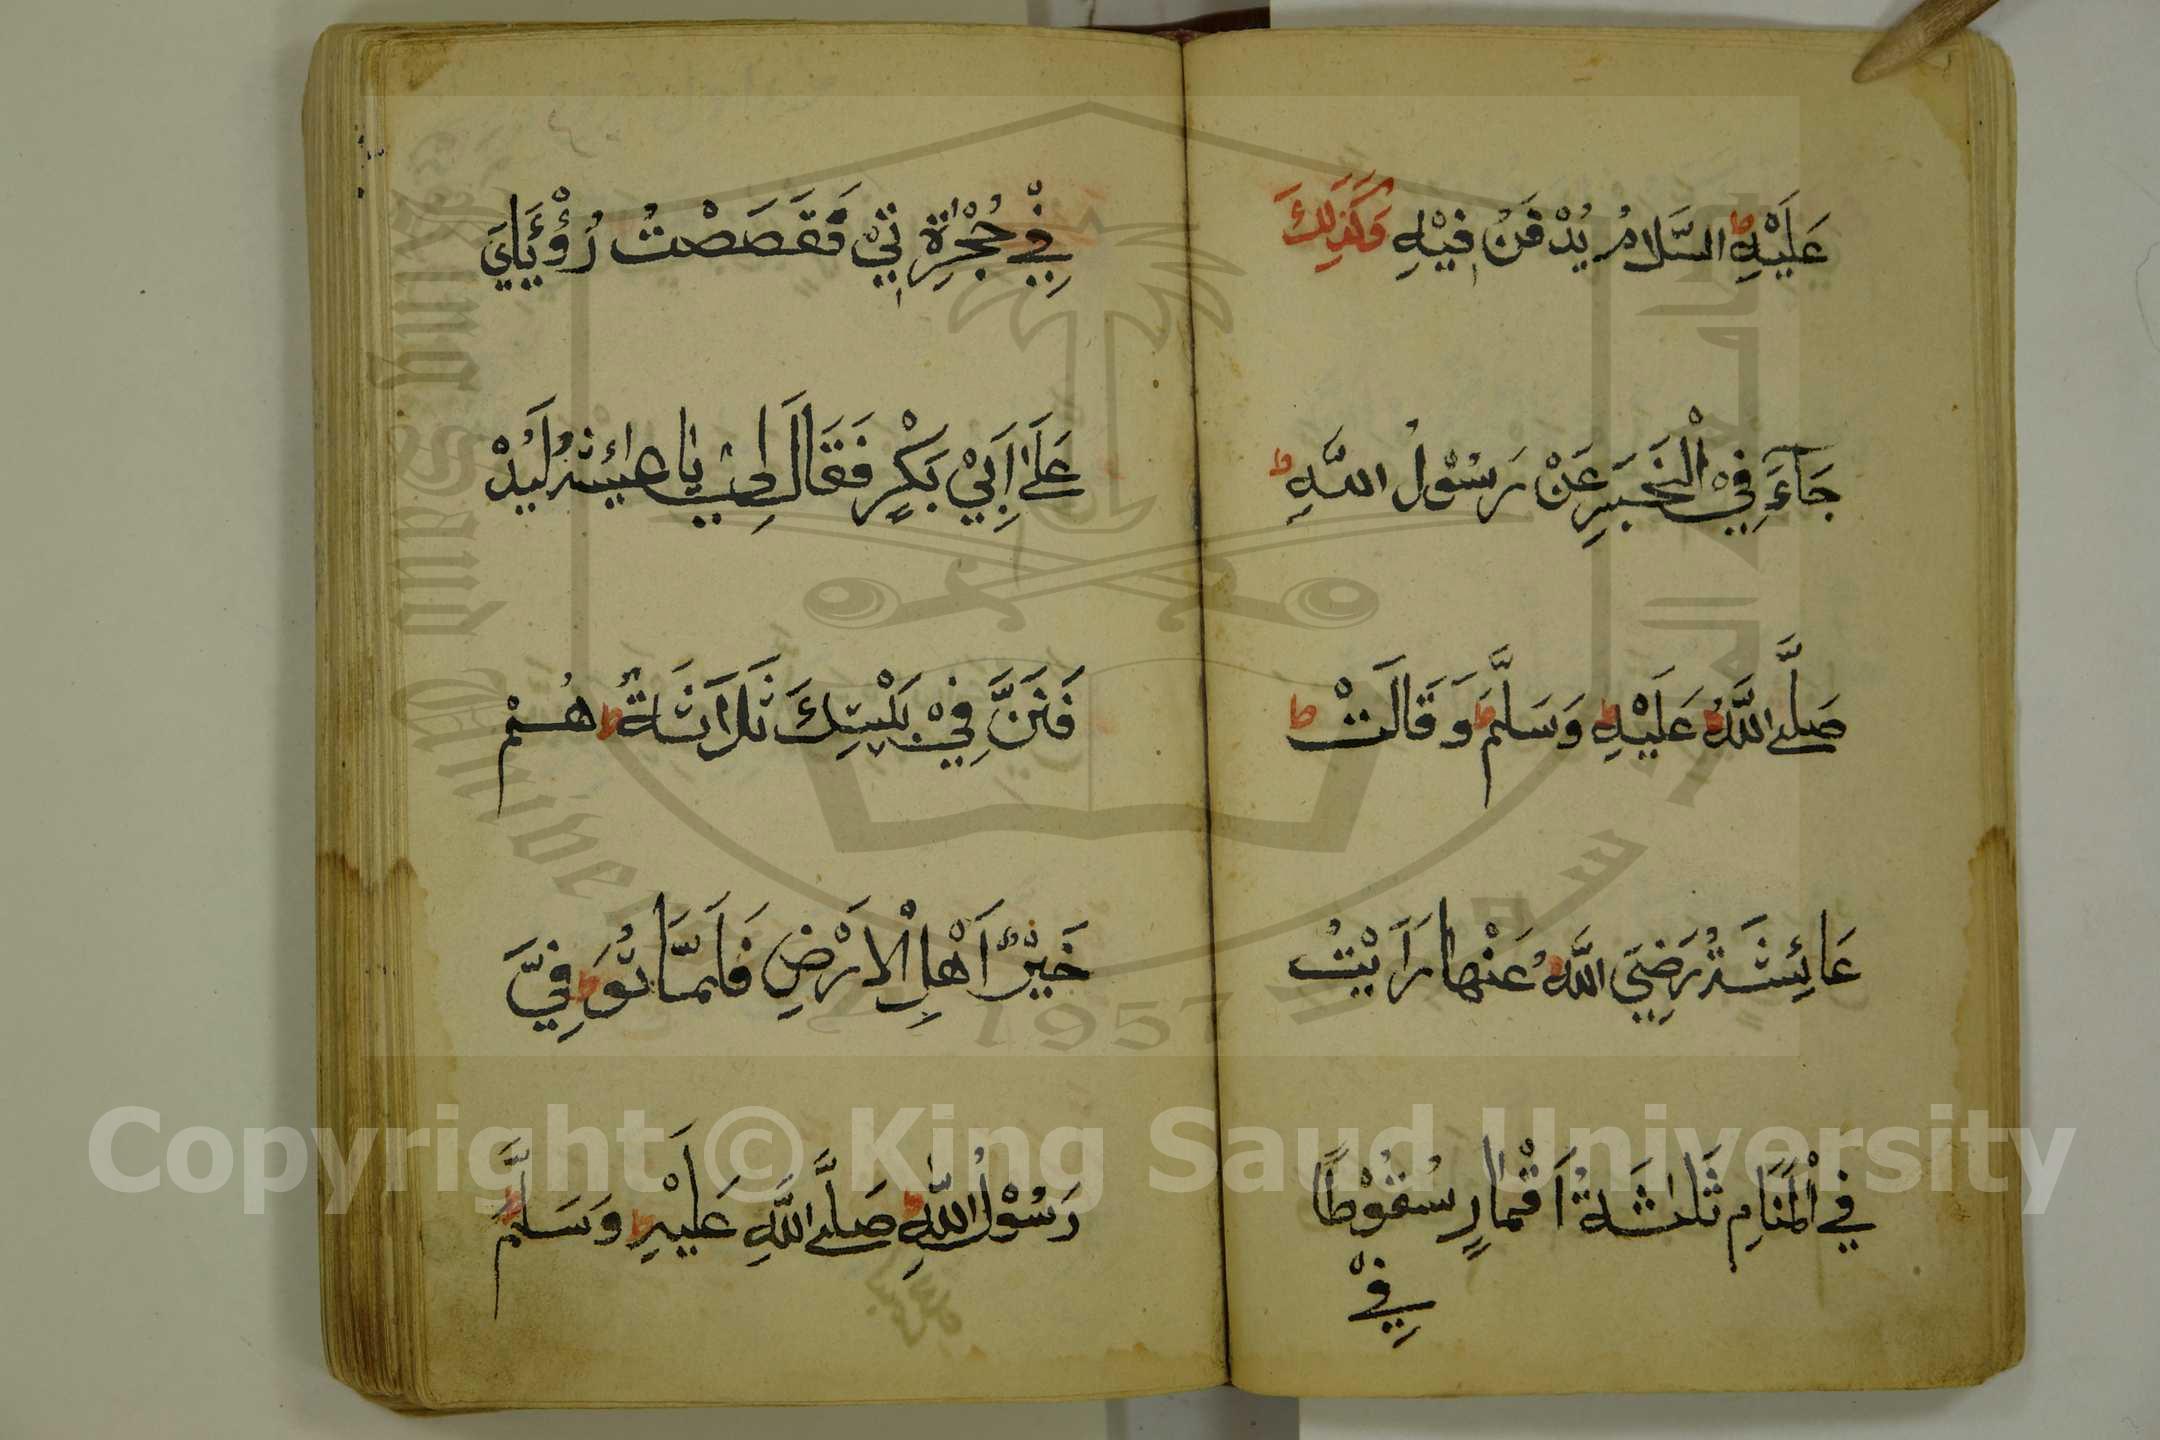 عَلَيْهِ السَّلَامُ يُدْفَنُ فِيْهِ وَكَذٰلِكَ
جَآءَ فِي الْخَبَرِ عَنْ رَسُوْلُ اللّٰهِ
صَلَّى اللّٰهُ عَلَيْهِ وَسَلَّمَ وَقَالَتْ
عَائِشَةُ رَضِيَ اللّٰهُ عَنْهَا رَاَيْتُ
فِي الْمَنَامِ ثَلٰثَةُ اَقْمَارٍ سُقُوْطًا
فِيْ
فِيْ حُجْرَتِيْ فَقَصَصْتُ رُؤْيَايَ
عَلٰى اَبِيْ بَكْرٍ فَقَالَ لِيْ يَا عَائِشَةُ لَيُدْ
فَنَنَّ فِيْ بَيْتِكَ ثَلَاثَةٌ هُمْ
خَيْرٌ اَهْلِ الْاَرْضِ فَلَمَّا تُوُفِّيَ
رَسُوْلُ اللّٰهِ صَلَّى اللّٰهِ عَلَيْهِ وَسَلَّمَ
Copyright © King Saud University
King Saud University
1957